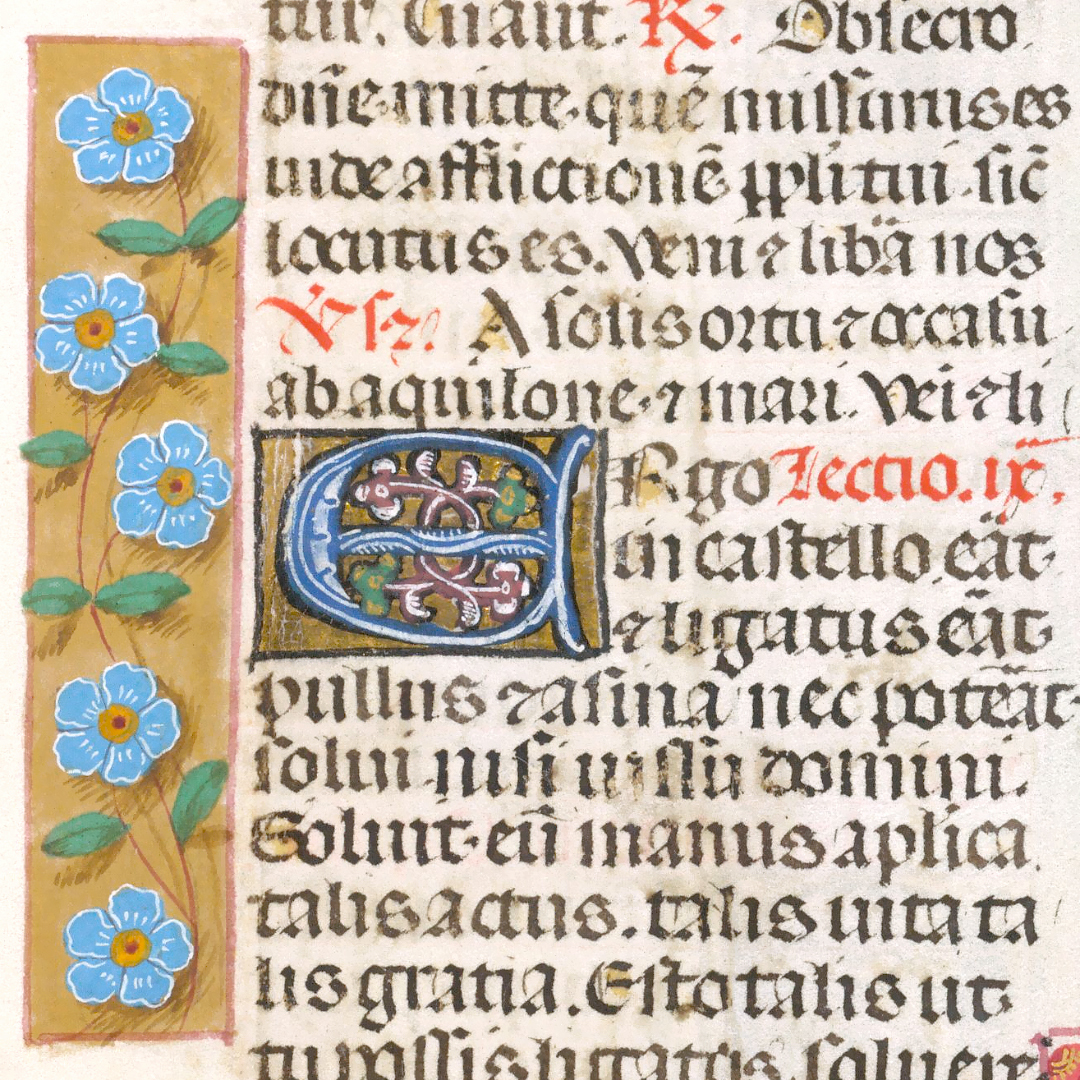 tur. Cuaut. R. Obsecro
dñe mitte quē missurus es
vide afflictionē ppli tui sic̄
locutus es. Veni ⁊ libā nos
V̄s⁊ A solis ortu ⁊ occasu
ab aquilone ⁊ mari. Vei ⁊ li
ERgo Lectio. ix.
in castello eāt
⁊ ligatus eāt
pullus ⁊ asina nec poteāt
solui nisi iussu domini.
Soluit eū manus aplica
talis actus. talis uita ta
lis gratia. Esto talis ut
tu possis ligatos soluere